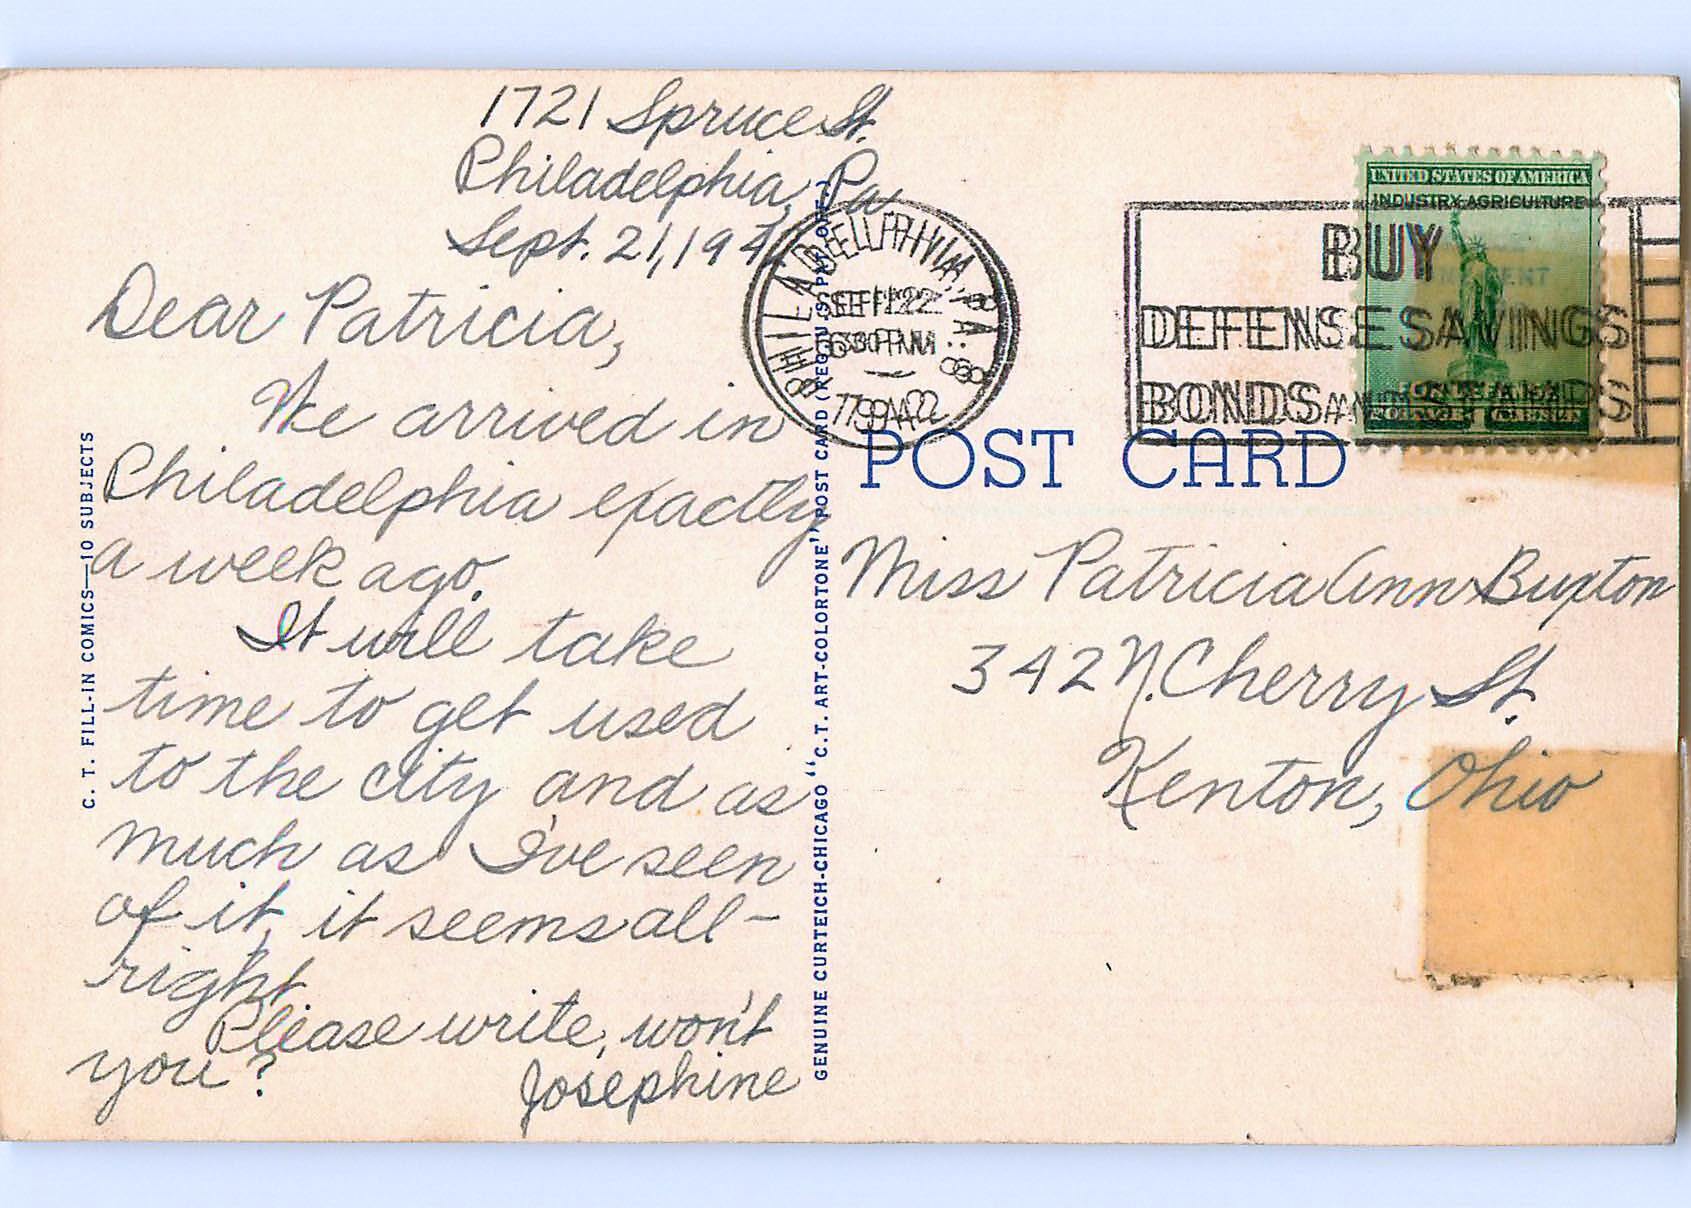 1721 Spruce St.
Philadelphia, Pa
Sept. 21, 1942
Dear Patricia,
We arrived in
Philadelphia exactly
a week ago.
It will take
time to get used
to the city and as
much as I've seen
of it, it seems all-
right.
Please write, won't
you?
Josephine
C. T. FILL-IN COMICS—10 SUBJECTS
GENUINE CURTEICH-CHICAGO "C.T. ART-COLORTONE" POST CARD (REG. U.S. PAT. OFF.)
PHILADELPHIA, PA.
SEP 22
630 PM
1942
BUY
DEFENSE SAVINGS
BONDS AND STAMPS
UNITED STATES OF AMERICA
INDUSTRY AGRICULTURE
FOR DEFENSE
POST CARD
Miss Patricia Ann Buxton
342 N. Cherry St.
Kenton, Ohio